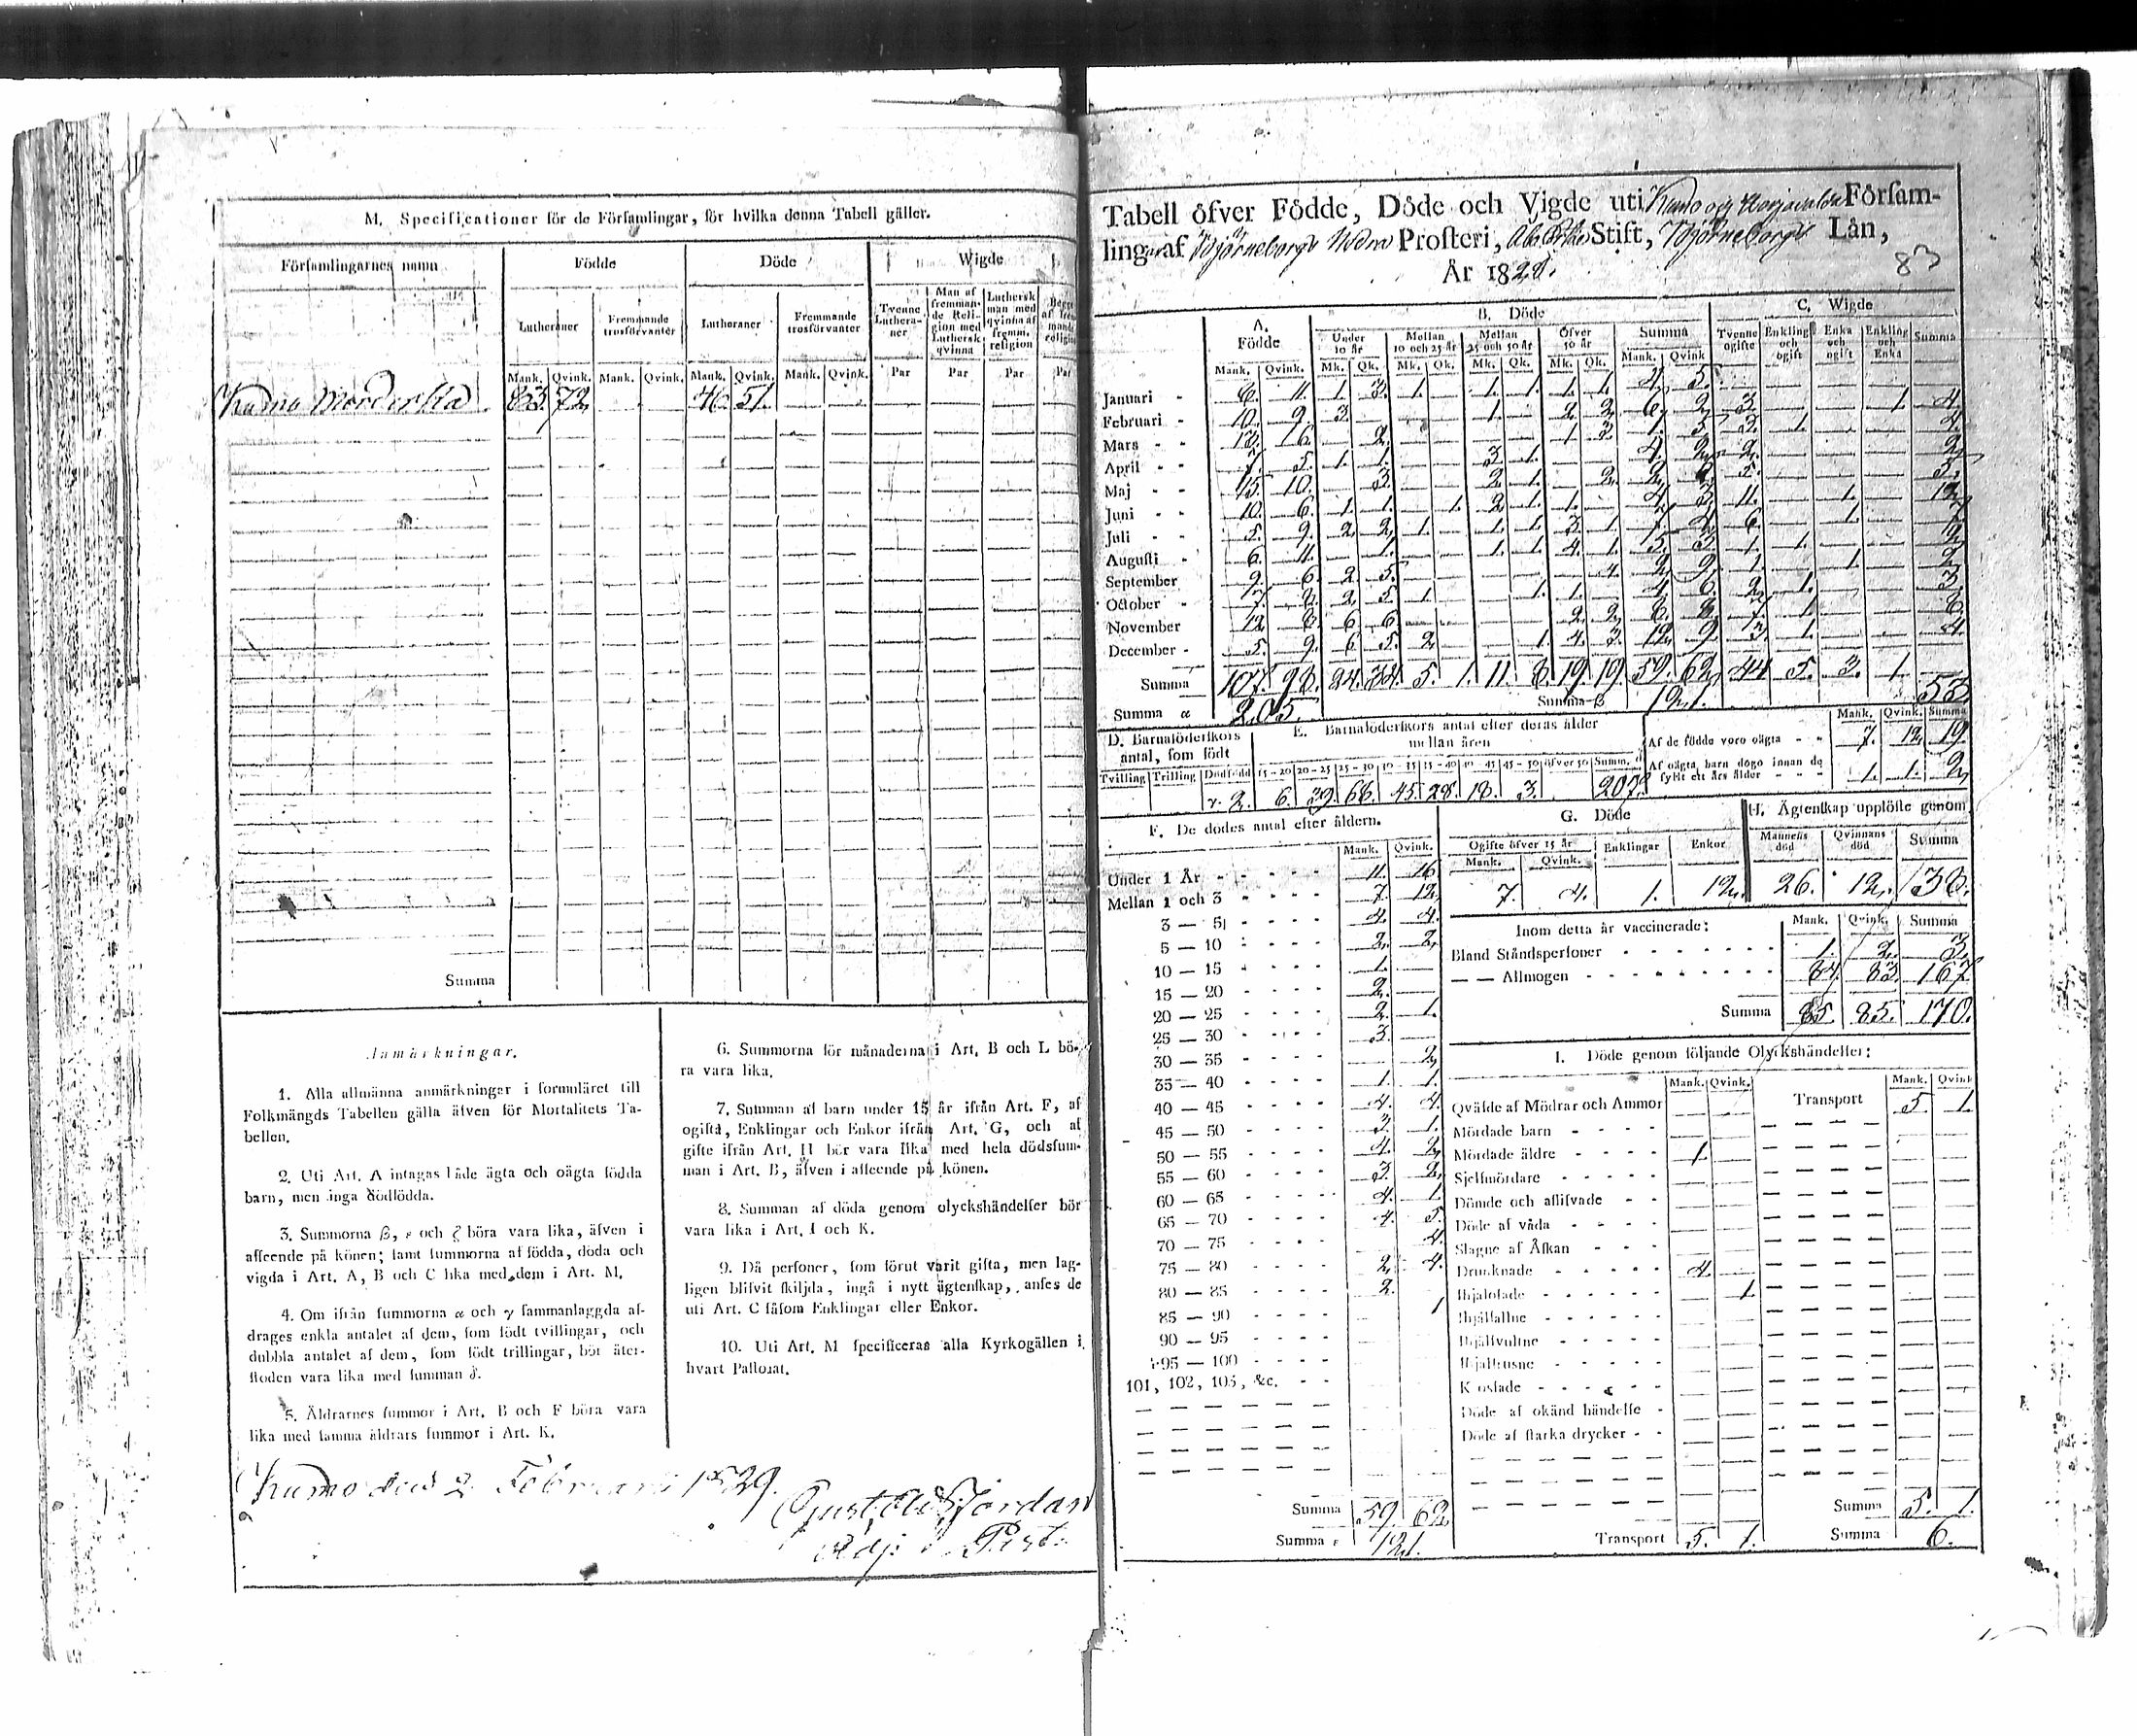 M. Specificationer för de Församlingar, för hvilka denna Tabell gäller.
Församlingarnes namn Födde Döde Wigde
Lutheraner Fremmande trosförvanter Lutheraner Fremmande trosförvanter Tvenne Luthera-ner Man af fremman-de Reli-gion med Luthersk qvinna Luthersk man med qvinna af fremm. religion
Mank. Qvink. Mank. Qvink. Mank. Qvink. Mank. Qvink. Par Par Par Par
Kumo 83. 72. 46. 51.
Summa
Anmärkningar.
1. Alla allmänna anmärkningar i formuläret till
Folkmängds Tabellen gälla äfven för Mortalitets Ta-
bellen.
2. Uti Art. A intagas både ägta och oägta födda
barn, men inga dödfödda.
3. Summorna β, ε och ζ böra vara lika, äfven i
afseende på könen; samt summorna af födda, döda och
vigda i Art. A, B och C lika med dem i Art. M.
4. Om ifrån summorna α och γ sammanlaggda af-
drages enkla antalet af dem, som födt tvillingar, och
dubbla antalet af dem, som födt trillingar, bör åter-
stoden vara lika med summan δ.
5. Åldrarnes summor i Art. B och F böra vara
lika med samma åldrars summor i Art. K.
6. Summorna för månaderna i Art. B och L bö-
ra vara lika.
7. Summan af barn under 15 år ifrån Art. F, af
ogifta, Enklingar och Enkor ifrån Art. G, och af
gifte ifrån Art. H bör vara lika med hela dödssum-
man i Art. B, äfven i afseende på könen.
8. Summan af döda genom olyckshändelser bör
vara lika i Art. I och K.
9. Då personer, som förut varit gifta, men lag-
ligen blifvit skiljda, ingå i nytt ägtenskap, anses de
uti Art. C såsom Enklingar eller Enkor.
10. Uti Art. M specificeras alla Kyrkogällen i
hvart Pastorat.
Kumo den 2 Februari 1829.
Gust. Ad. Hjordan
Adj.
Tabell öfver Födde, Döde och Vigde uti Kumo och Harjavalda Försam-
lingar af Björneborgs Nedre Prosteri, Åbo Stift, Björneborgs Län,
År 1828.
83
A. Födde B. Döde C. Wigde
Under 10 år Mellan 10 och 25 år Mellan 25 och 50 år Öfver 50 år Summa Tvenne ogifte Enkling och ogift Enka och ogift Enkling och Enka Summa
Mank. Qvink. Mk. Qk. Mk. Qk. Mk. Qk. Mk. Qk. Mank. Qvink
Januari 8. 11. 1. 3. 1. 1. 1. 1. 1. 4. 5.
Februari 10. 9. 3. 1. 2. 2. 6. 2. 3. 1. 4.
Mars 13. 6. 2. 1. 3. 1. 5. 3. 1. 4.
April 7. 5. 1. 1. 3. 1. 4. 2. 2. 2.
Maj 15. 10. 3. 2. 1. 2. 2. 6. 5. 5.
Juni 10. 6. 1. 1. 1. 2. 1. 1. 4. 3. 11. 1. 12.
Juli 5. 9. 2. 2. 1. 1. 1. 3. 1. 7. 4. 6. 1. 7.
Augusti 6. 11. 1. 1. 1. 4. 1. 5. 3. 1. 1. 2.
September 9. 6. 2. 5. 4. 2. 9. 1. 1. 2.
October 7. 2. 2. 5. 1. 1. 1. 4. 6. 2. 1. 3.
November 12. 8. 6. 6. 2. 2. 8. 8. 7. 1. 8.
December 5. 9. 6. 5. 2. 1. 4. 3. 12. 9. 3. 1. 4.
Summa 107. 98. 24. 34. 5. 1. 11. 8. 19. 19. 59. 62. 44. 5. 3. 1. 53
Summa α 205. Summa β 121.
D. Barnaföderskors antal, som födt E. Barnaföderskors antal efter deras ålder mellan åren
Tvilling Trilling Dödfödd 15-20 20-25 25-30 30-35 35-40 40-45 45-50 öfver 50 Summ. δ
γ. 2. 6. 39. 68. 45. 28. 18. 3. 207.
Mank. Qvink. Summa
Af de födde voro oägta 7. 12. 19.
Af oägta barn dogo innan de fyllt ett års ålder 1. 1. 2.
F. De dödes antal efter åldern.
Mank. Qvink.
Under 1 År 11. 16
Mellan 1 och 3 7. 12.
3 — 5 4. 4.
5 — 10 2. 2.
10 — 15 1.
15 — 20 2.
20 — 25 2. 1.
25 — 30 3.
30 — 35 2.
35 — 40 1. 1.
40 — 45 4. 4.
45 — 50 3. 1.
50 — 55 4. 2.
55 — 60 3. 2.
60 — 65 4. 1.
65 — 70 4. 5.
70 — 75 4.
75 — 80 2. 4.
80 — 85 2.
85 — 90 1
90 — 95
95 — 100
101, 102, 103, &c.
Summa 59. 62.
Summa ε 121.
G. Döde
Ogifte öfver 15 år Enklingar Enkor
Mank. Qvink.
7. 4. 1. 12.
H. Ägtenskap upplöste genom
Mannens död Qvinnans död Summa
26. 12. 38.
Inom detta år vaccinerade: Mank. Qvink. Summa
Bland Ståndspersoner 1. 2. 3.
— — Allmogen 84. 83. 167.
Summa 85. 85. 170.
I. Döde genom följande Olyckshändelser:
Mank. Qvink. Mank. Qvink
Qväfde af Mödrar och Ammor Transport 5. 1.
Mördade barn
Mördade äldre 1.
Sjelfmördare
Dömde och aflifvade
Döde af våda
Slagne af Åskan
Drunknade 4.
Ihjälosade 1.
Ihjälfallne
Ihjälsvultne
Ihjälfrusne
Krossade
Döde af okänd händelse
Döde af starka drycker
Summa 5. 1.
Transport 5. 1. Summa 6.